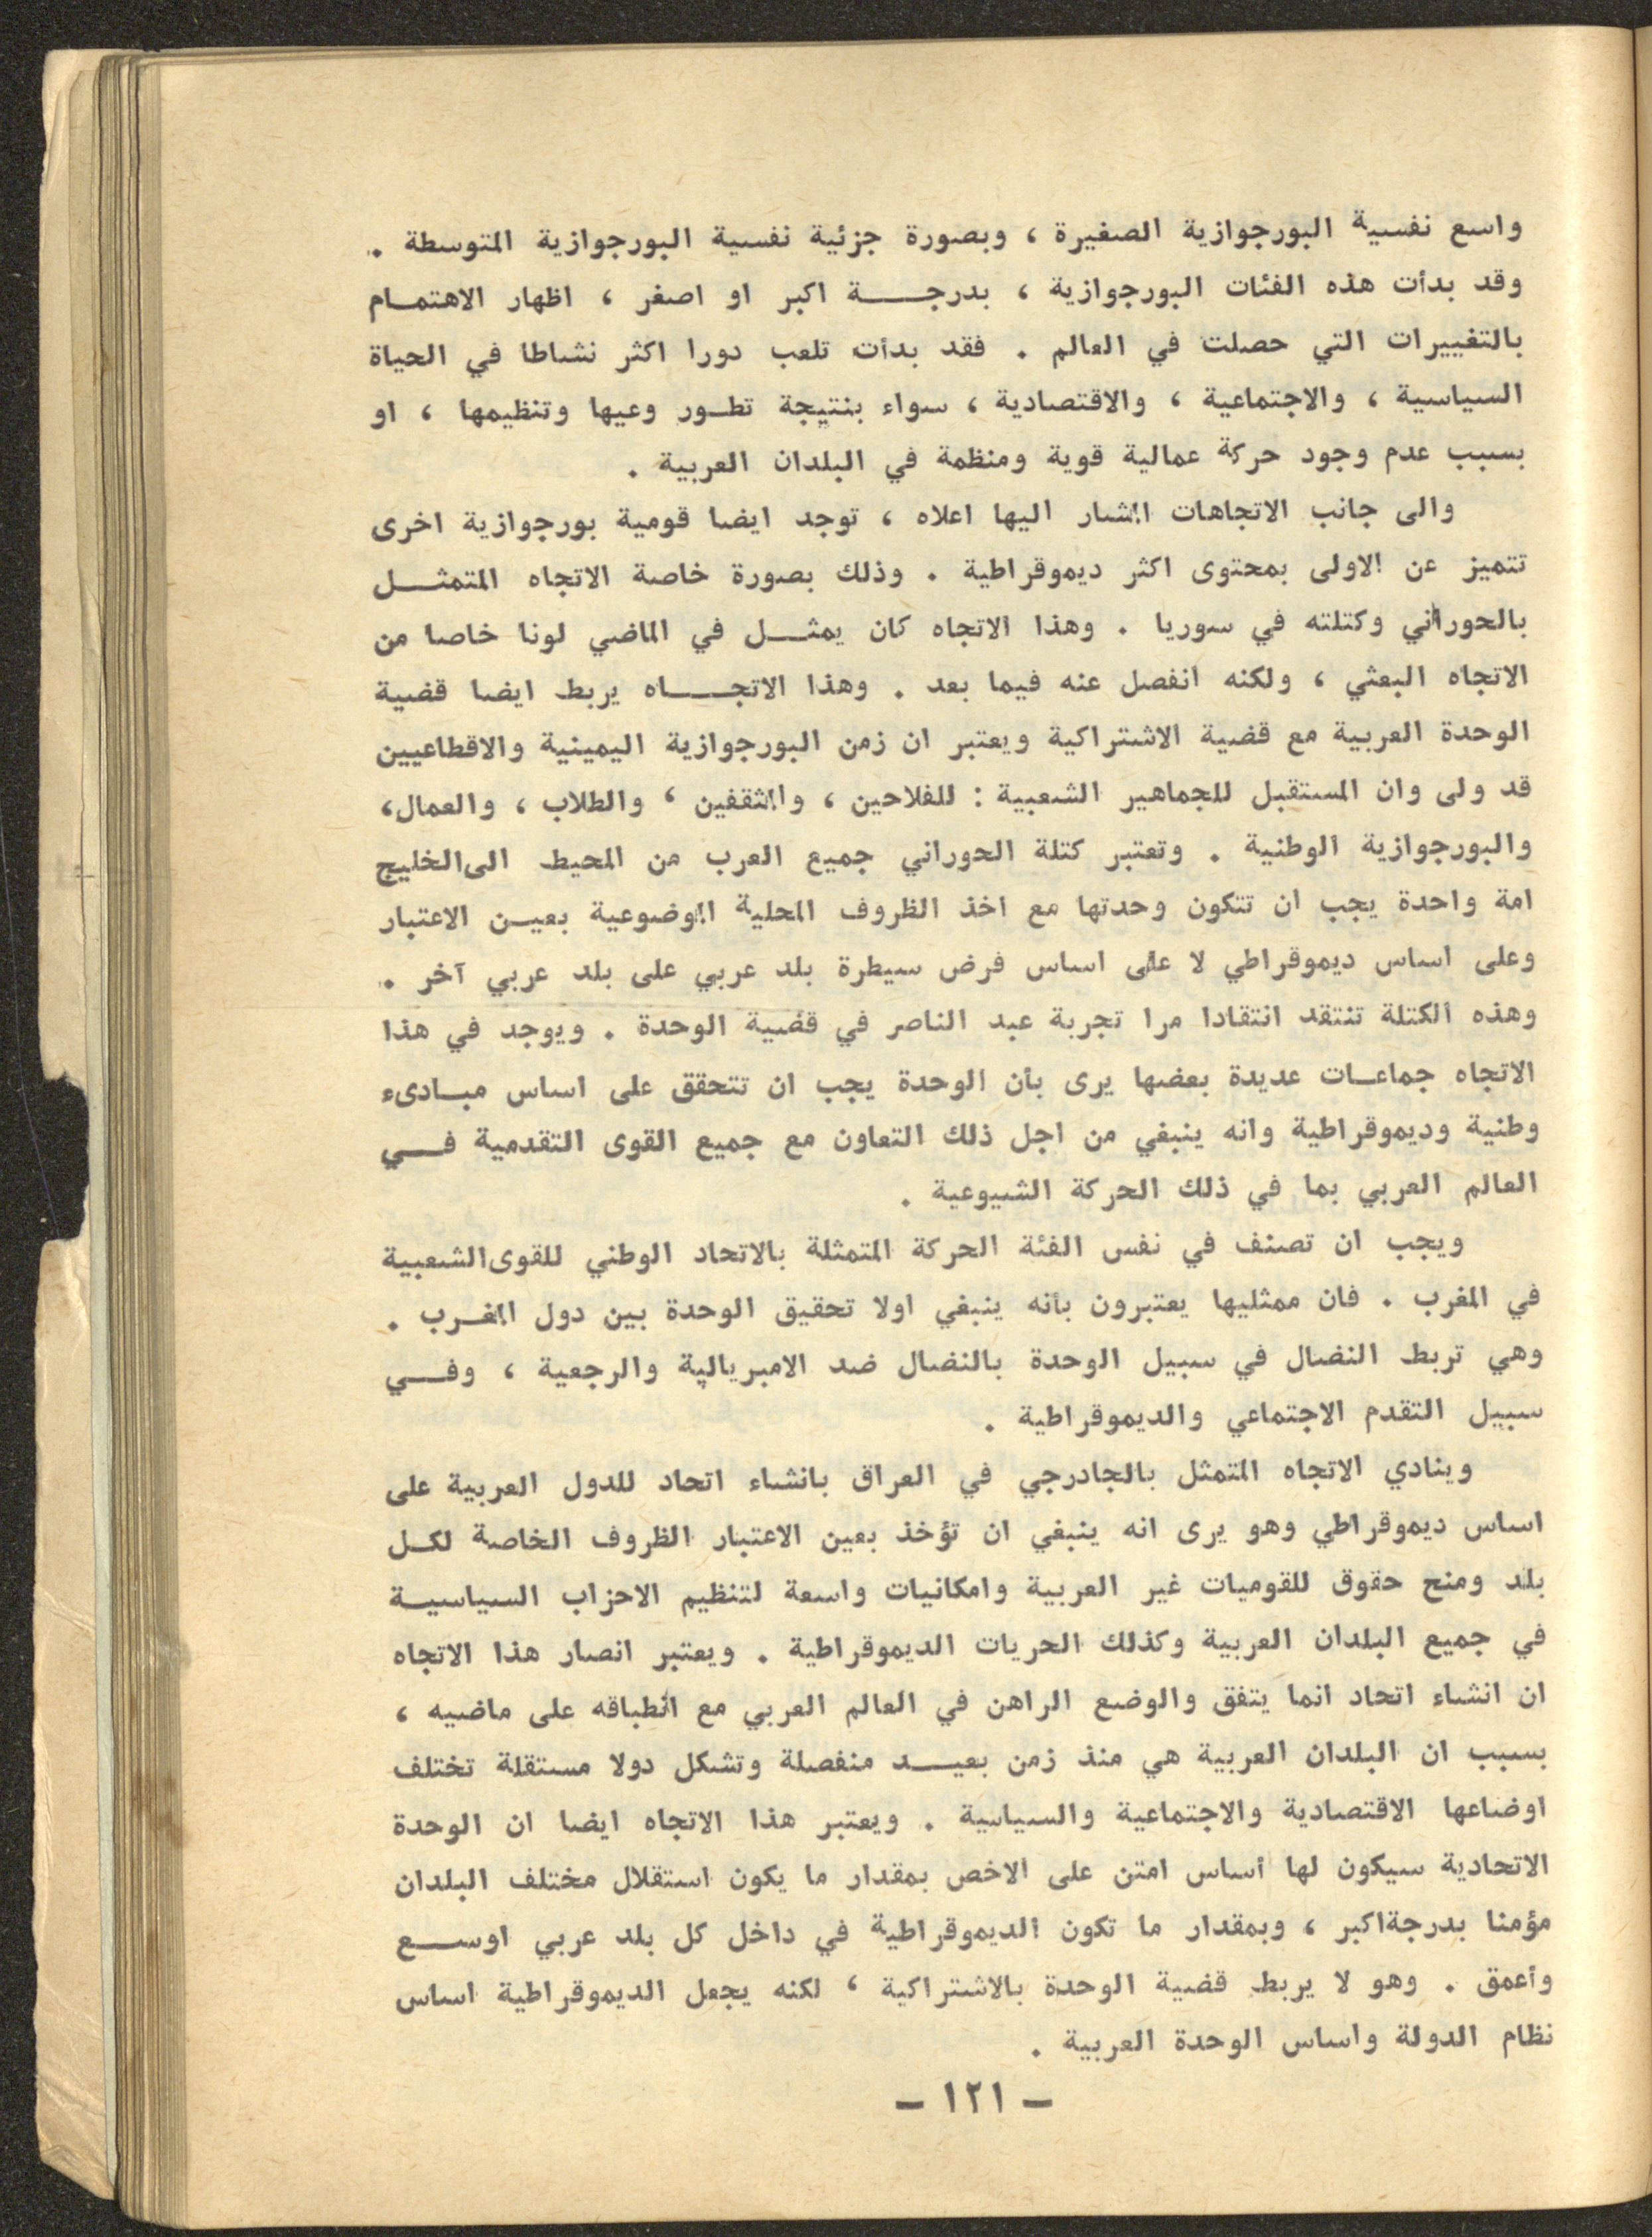 واسع نفسية البورجوازية الصغيرة ، وبصورة جزئية نفسية البورجوازية المتوسطة .
وقد بدأت هذه الفئات البورجوازية ، بدرجـــــة اكبر او اصغر ، اظهار الاهتمـام
بالتغييرات التي حصلت في العالم . فقد بدأت تلعب دورا اكثر نشاطا في الحياة
السياسية ، والاجتماعية ، والاقتصادية ، سواء بنتيجة تطـور وعيها وتنظيمها ، او
بسبب عدم وجود حركة عمالية قوية ومنظمة في البلدان العربية .
والى جانب الاتجاهات المشار اليها اعلاه ، توجد ايضا قومية بورجوازية اخرى
تتميز عن الاولى بمحتوى اكثر ديموقراطية . وذلك بصورة خاصة الاتجاه المتمثـــل
بالحوراني وكتلته في سوريا . وهذا الاتجاه كان يمثـــل في الماضي لونا خاصا من
الاتجاه البعثي ، ولكنه انفصل عنه فيما بعد . وهذا الاتجــــاه يربط ايضا قضية
الوحدة العربية مع قضية الاشتراكية ويعتبر ان زمن البورجوازية اليمينية والاقطاعيين
قد ولى وان المستقبل للجماهير الشعبية : للفلاحين ، والمثقفين ، والطلاب ، والعمال،
والبورجوازية الوطنية . وتعتبر كتلة الحوراني جميع العرب من المحيط الى الخليج
امة واحدة يجب ان تتكون وحدتها مع اخذ الظروف المحلية الموضوعية بعيـن الاعتبار
وعلى اساس ديموقراطي لا على اساس فرض سيطرة بلد عربي على بلد عربي آخر .
وهذه الكتلة تنتقد انتقادا مرا تجربة عبد الناصر في قضية الوحدة . ويوجد في هذا
الاتجاه جماعـات عديدة بعضها يرى بأن الوحدة يجب ان تتحقق على اساس مبـادىء
وطنية وديموقراطية وانه ينبغي من اجل ذلك التعاون مع جميع القوى التقدمية فـــي
العالم العربي بما في ذلك الحركة الشيوعية .
ويجب ان تصنف في نفس الفئة الحركة المتمثلة بالاتحاد الوطني للقوى الشعبية
في المغرب . فان ممثليها يعتبرون بأنه ينبغي اولا تحقيق الوحدة بين دول المغـرب .
وهي تربط النضال في سبيل الوحدة بالنضال ضد الامبريالية والرجعية ، وفـــي
سبيل التقدم الاجتماعي والديموقراطية .
وينادي الاتجاه المتمثل بالجادرجي في العراق بانشاء اتحاد للدول العربية على
اساس ديموقراطي وهو يرى انه ينبغي ان تؤخذ بعين الاعتبار الظروف الخاصة لكـل
بلد ومنح حقوق للقوميات غير العربية وامكانيات واسعة لتنظيم الاحزاب السياسيـة
في جميع البلدان العربية وكذلك الحريات الديموقراطية . ويعتبر انصار هذا الاتجاه
ان انشاء اتحاد انما يتفق والوضع الراهن في العالم العربي مع انطباقه على ماضيه ،
بسبب ان البلدان العربية هي منذ زمن بعيـــد منفصلة وتشكل دولا مستقلة تختلف
اوضاعها الاقتصادية والاجتماعية والسياسية . ويعتبر هذا الاتجاه ايضا ان الوحدة
الاتحادية سيكون لها أساس امتن على الاخص بمقدار ما يكون استقلال مختلف البلدان
مؤمنا بدرجة اكبر ، وبمقدار ما تكون الديموقراطية في داخل كل بلد عربي اوســـع
وأعمق . وهو لا يربط قضية الوحدة بالاشتراكية ، لكنه يجعل الديموقراطية اساس
نظام الدولة واساس الوحدة العربية .
– ١٢١ –